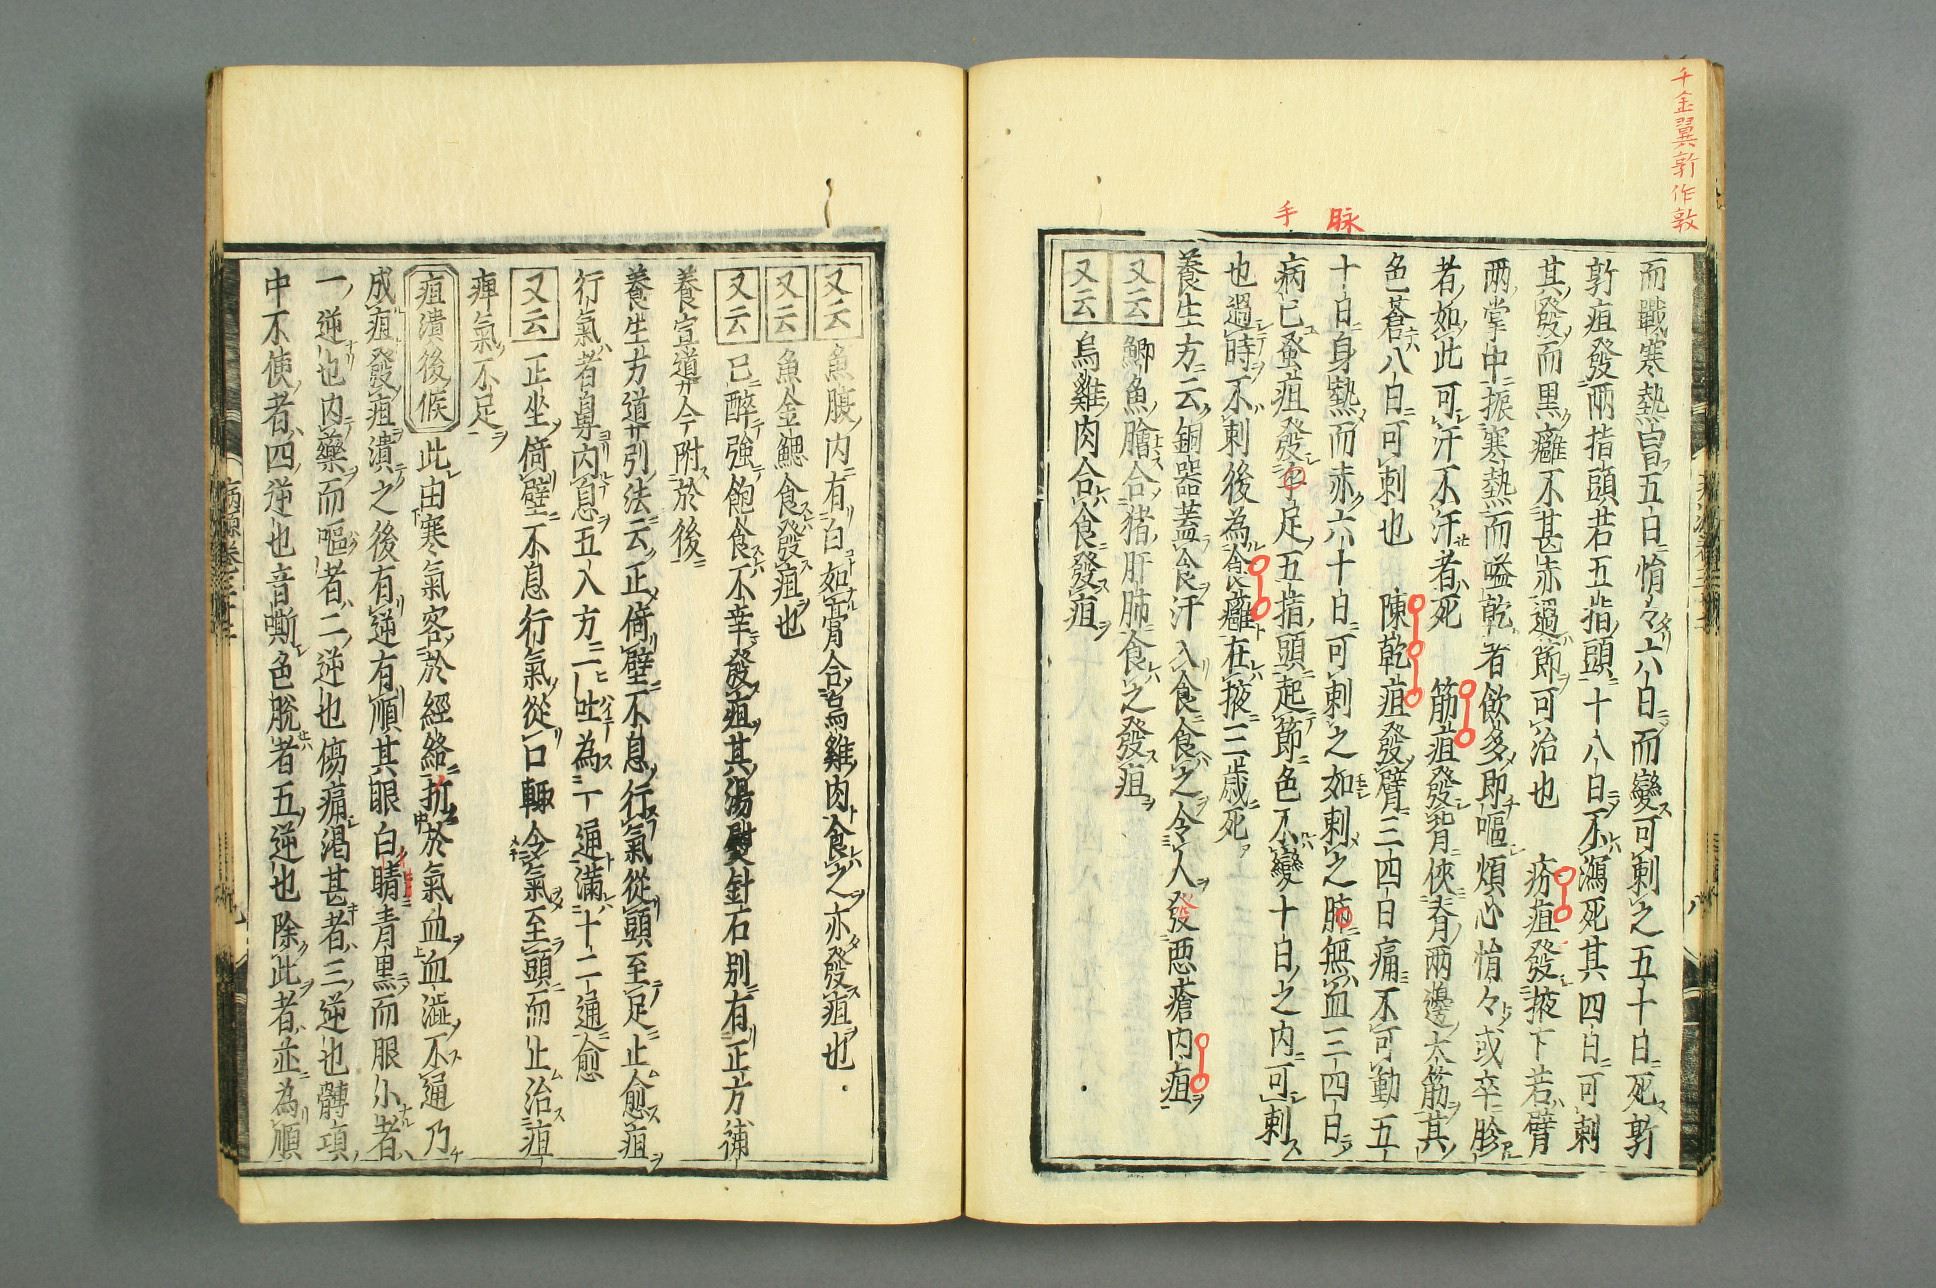 千金翼敦作敦
脉
手
而戰寒熱㫖五日悁々六日而變可刺之五十日死敦
敦疽發兩指頭若五指頭十八日不瀉死其四日可刺
其發而黒癰不甚赤過節可治也　疥疽發掖下若臂
兩掌中振寒熱而嗌乾者飲多即嘔煩心悁々或卒胗
者如此可汗不汗者死　筋疽發背俠脊兩邊大筋其
色蒼八日可刺也　陳乾疽發臂三四日痛不可動五
十日身熱而赤六十日可刺之如刺之肺無血三四日
病已蚤疽發手足五指頭起節色不變十日之内可刺
也過時不刺後為食癰在掖三歳死
養生方云銅器蓋食汗入食食之令人發悪瘡内疽
又云鯽魚膾合猪肝肺食之發疽
又云烏雞肉合食發疽
又云魚腹内有白如膏合烏雞肉食之亦發疽也
又云魚金鰓食發疽也
又云已醉強飽食不幸發疽其湯熨針石別有正方補
養宣道今附於後
養生方道引法云正倚壁不息行氣從頭至足止愈疽
行氣者鼻内息五入方一吐為一通滿十二通愈
又云正坐倚壁不息行氣從口輙令氣至頭而止治疽
痺氣不足
疽潰後候此由寒氣客於經絡折於氣血血澁不通乃
成疽發疽潰之後有逆有順其眼白睛青黒而眼小者
一逆也内藥而嘔者二逆也傷痛渇甚者三逆也髆項
中不使者四逆也音嘶色脱者五逆也除此者並為順
病源卷三十三
九